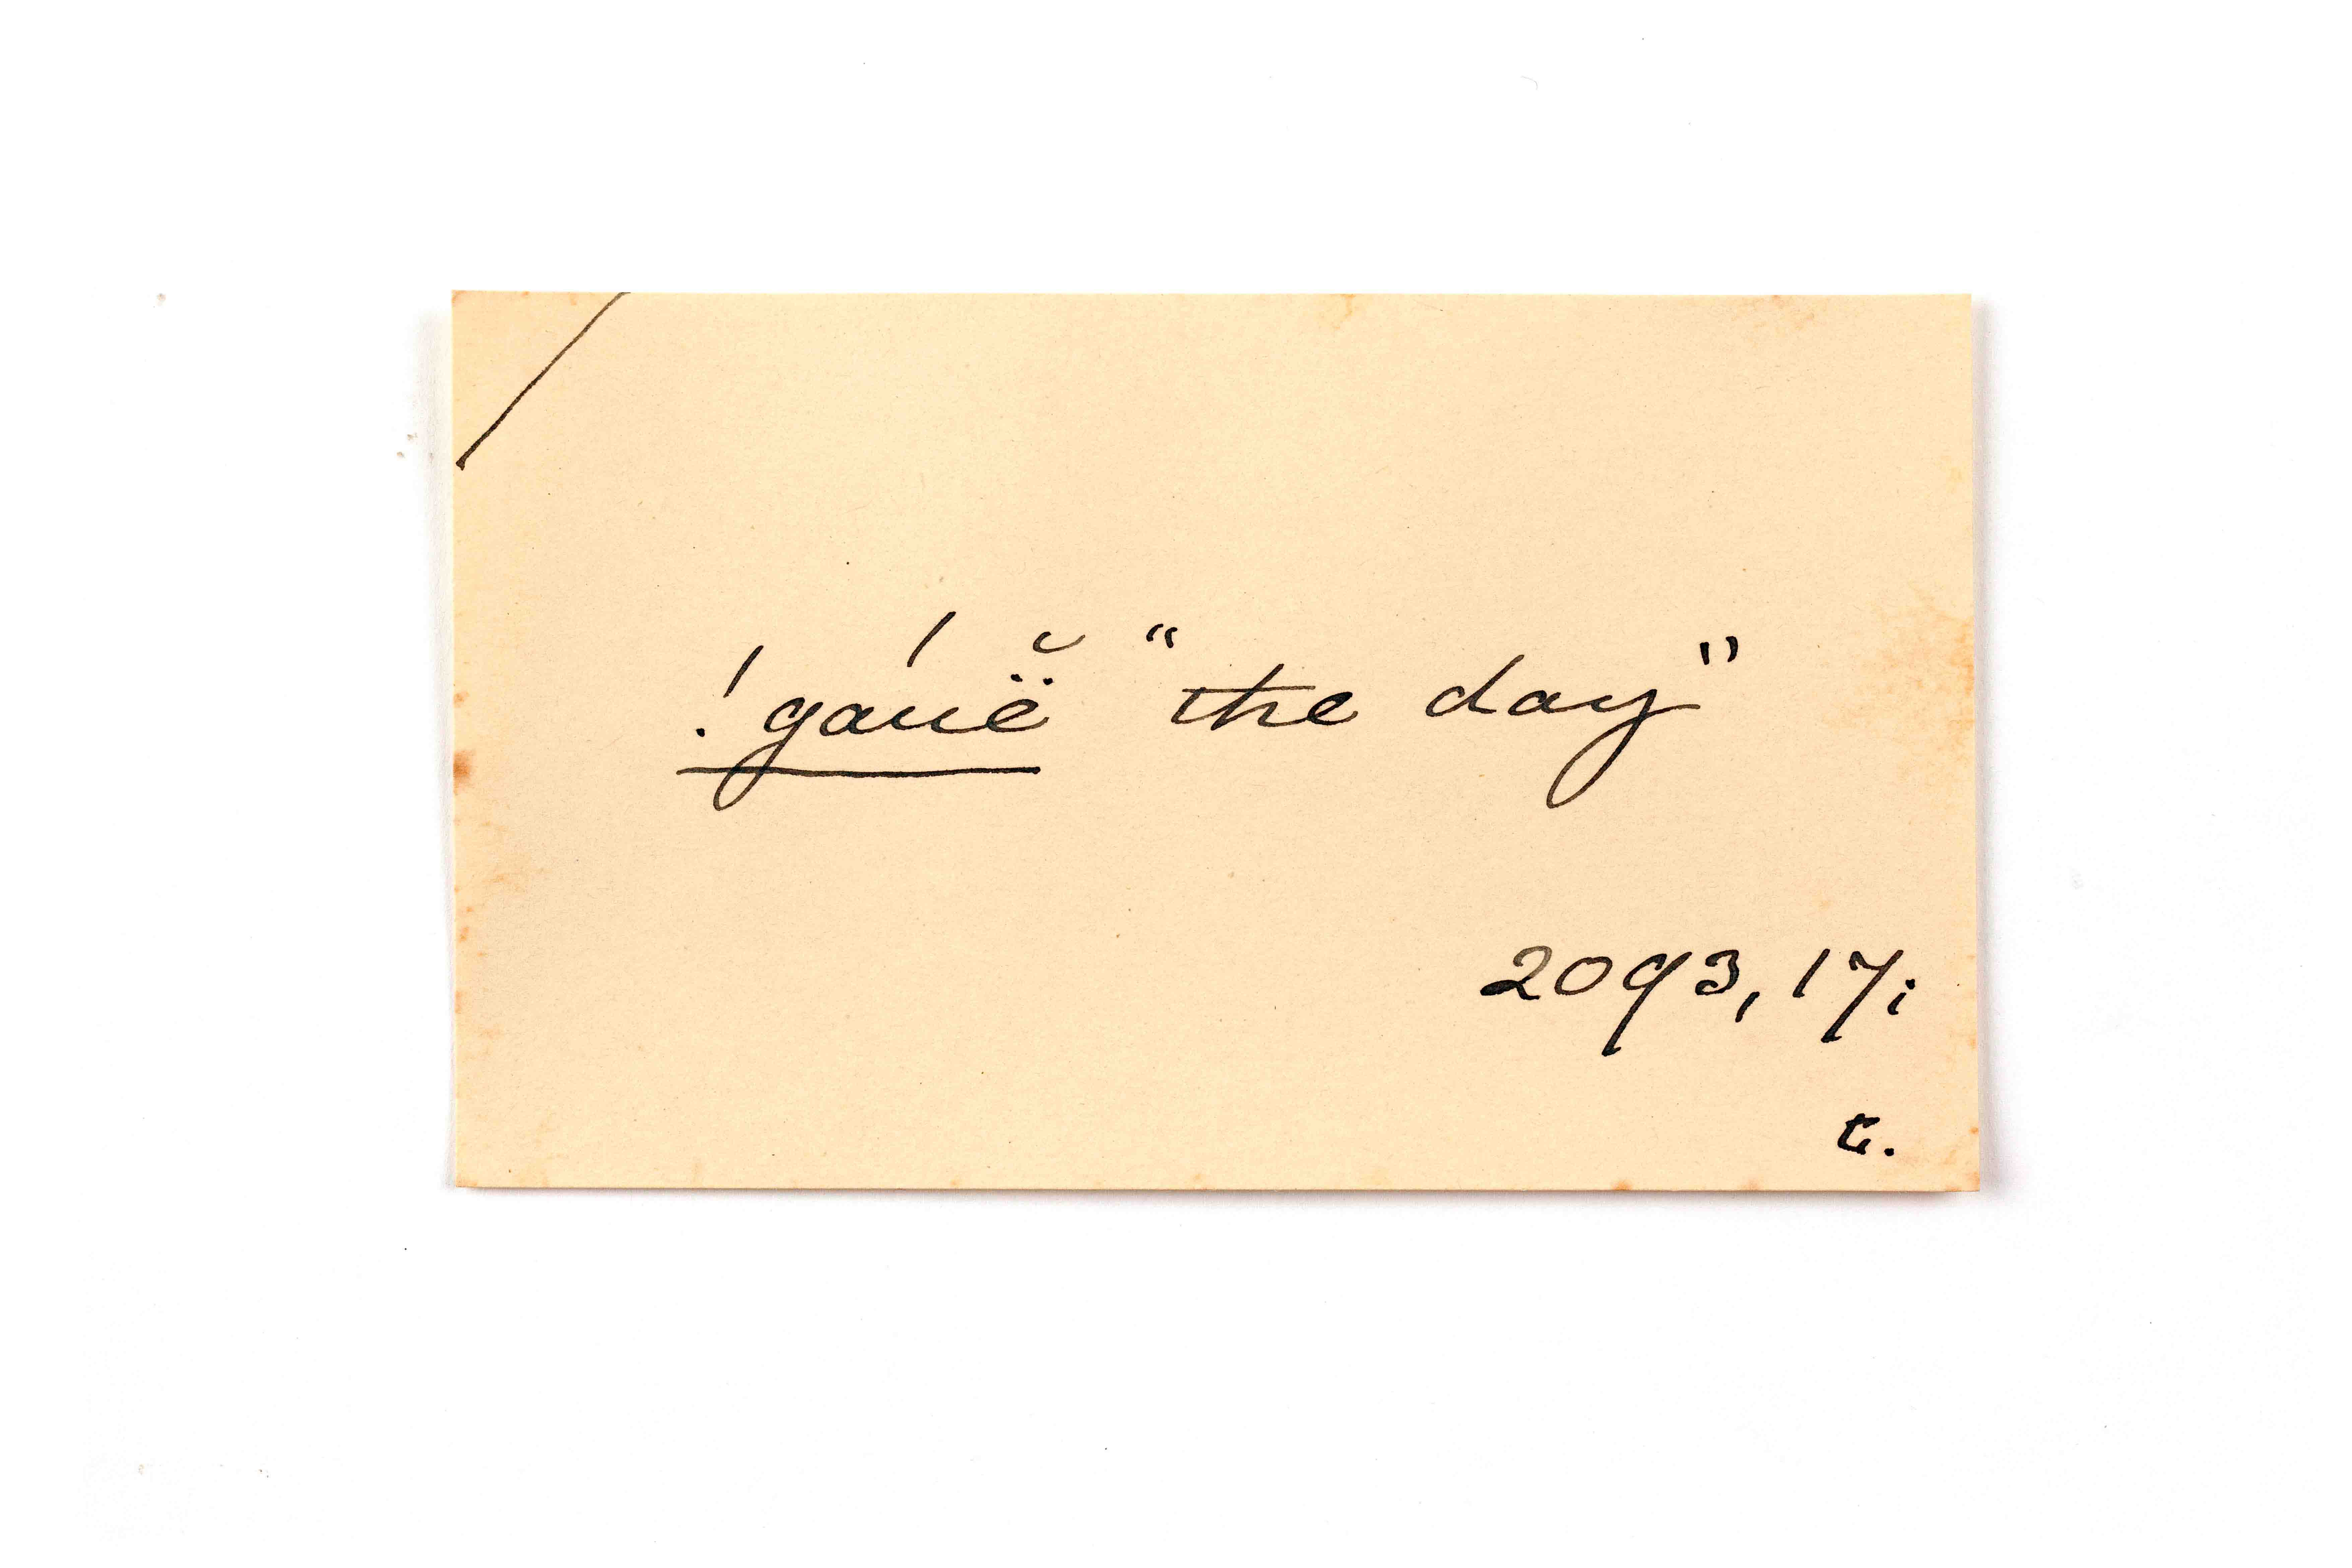 !gáuë̆ "the day"
2093, 17;
C.